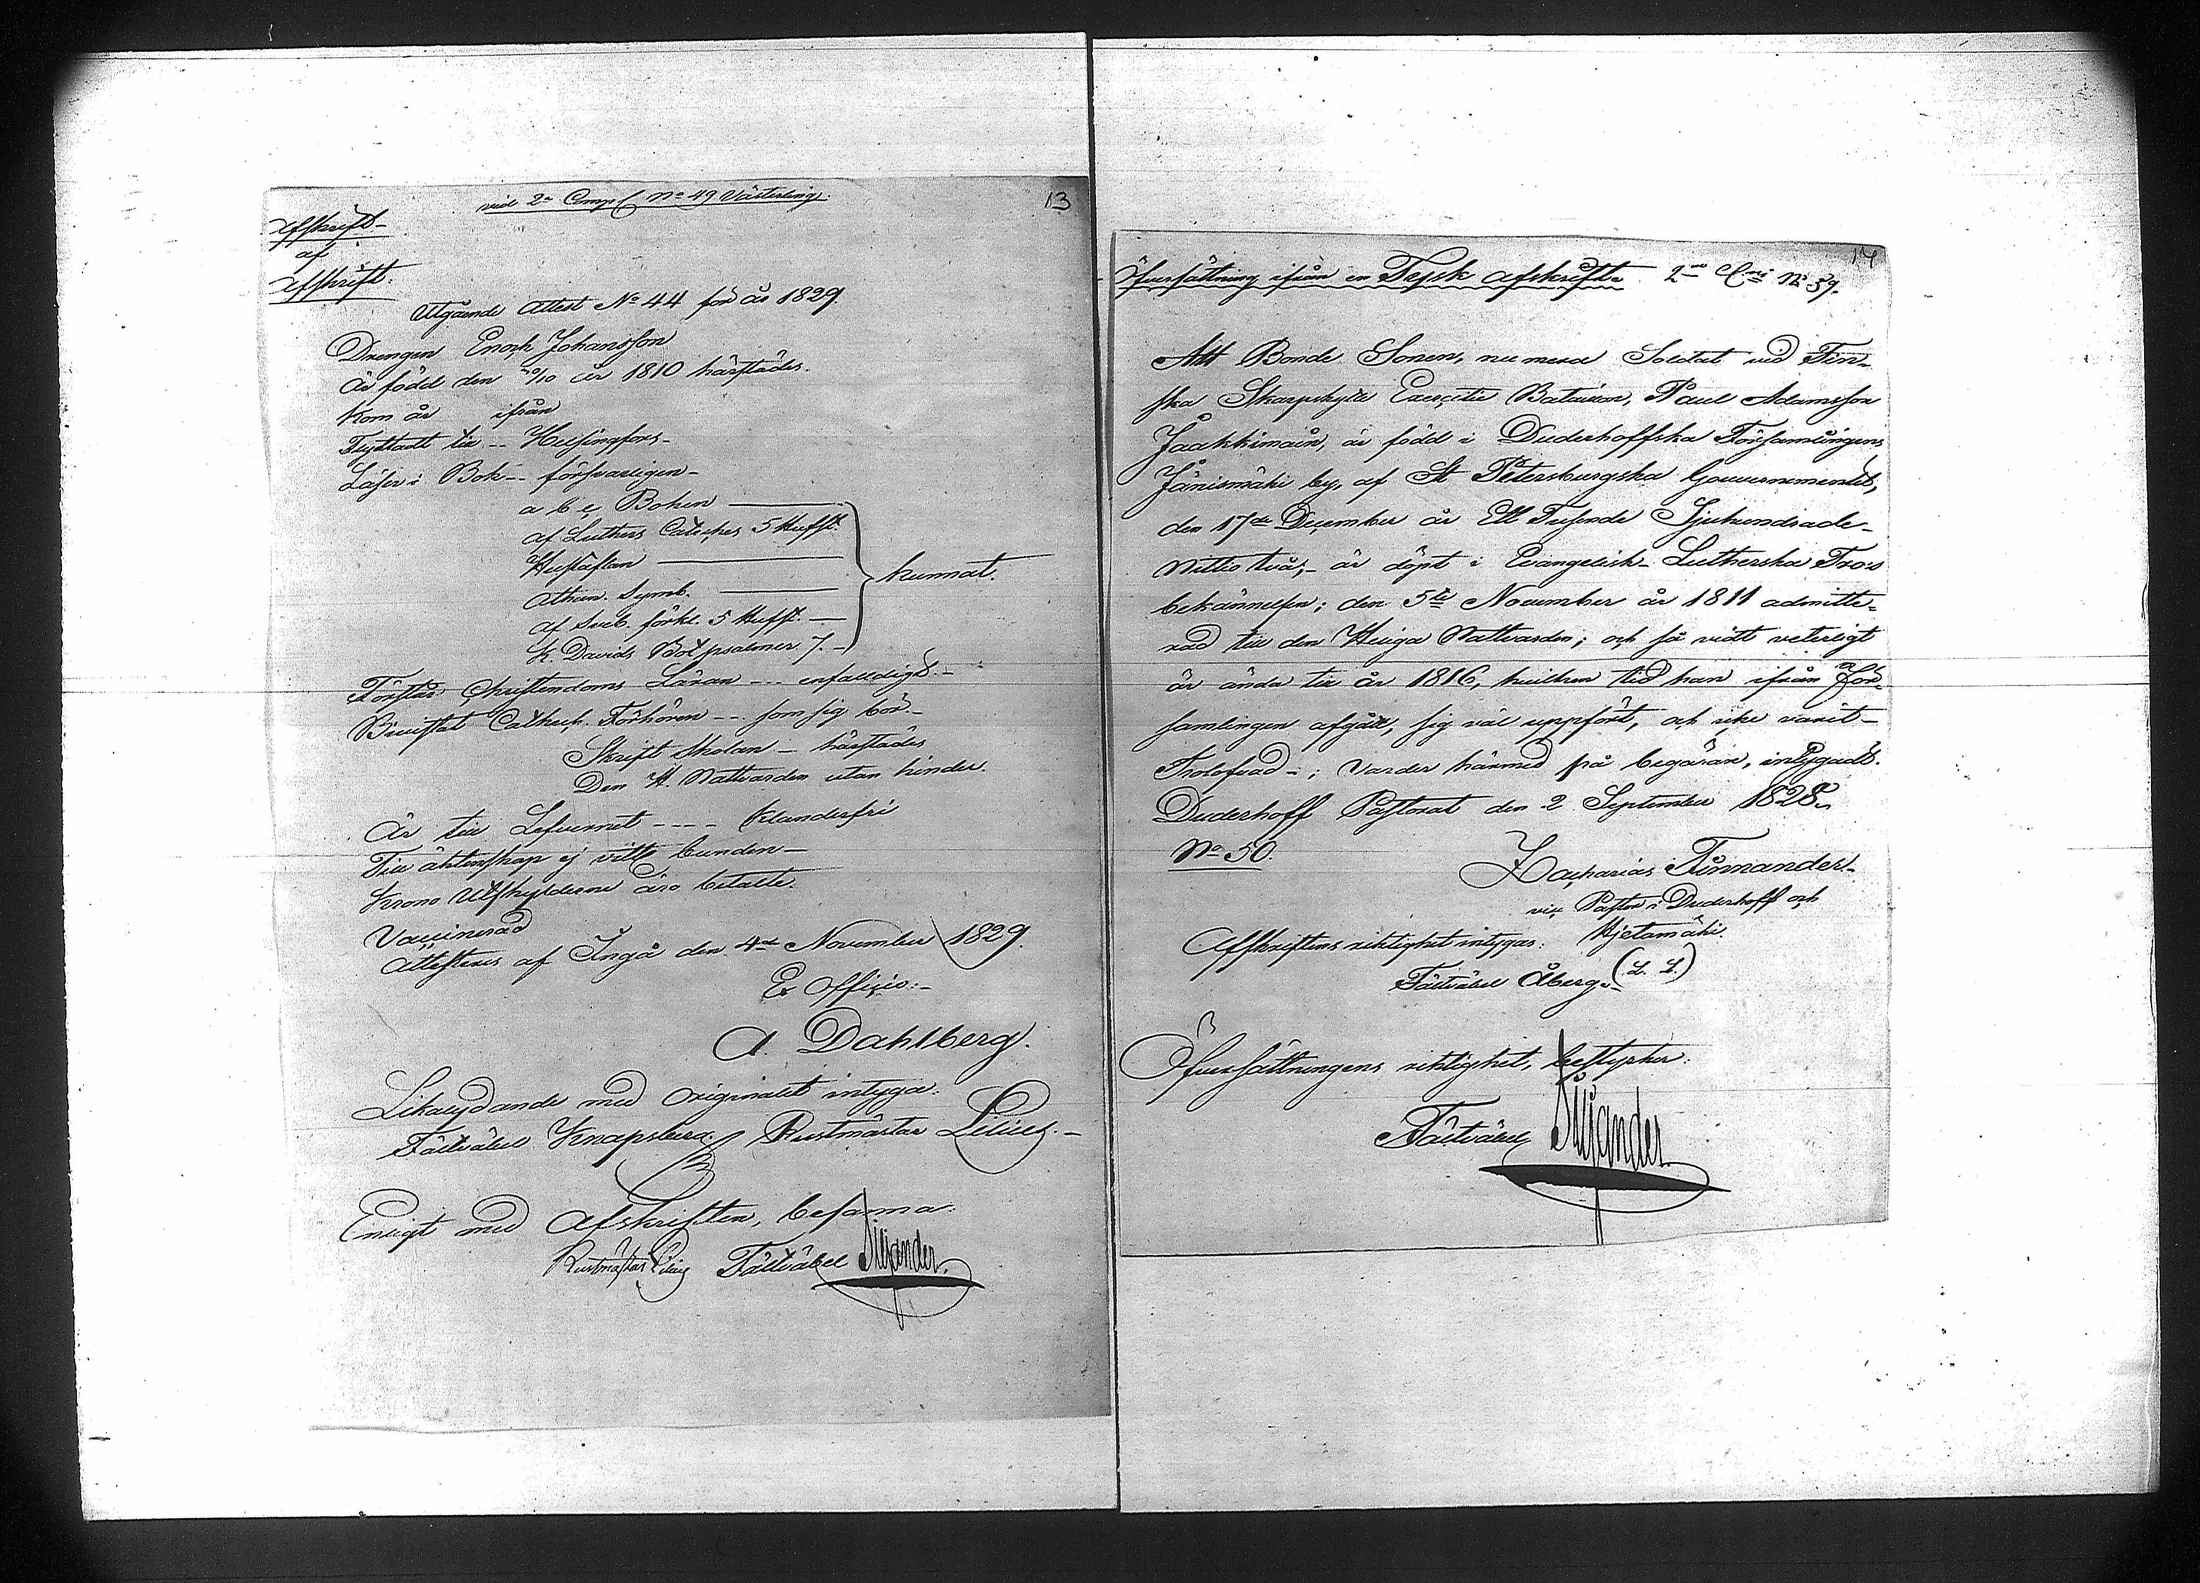 vid 2a Comp. No 49 Västerling.
13
Afskrift
af
Afskrift.
Utgående Attest No 44 för år 1829.
Drengen Enoch Johansson
är född den 20/10 år 1810 härstädes.
Kom år ifrån
Flyttadt till -- Helsingfors-
Läser i Bok -- försvarligen-
a b c Boken
af Luthers Cateches 5 Hufst.
Hustaflan
Athan. Symb.
af Sveb. förkl. 5 Hufst.
K. Davids Botpsalmer 7.
kunnat.
Förstår Christendoms Läran --- enfaldigt.-
Bivistat Cathech. Förhören -- som sig bör.-
Skrift skolan - härstädes
Den H. Nattvarden utan hinder.
Är till Lefvernet ---- Klanderfri
Till äktenskap ej vitt. bunden-
Krono Utskylderne äro betalte.
Vaccinerad
Attesteras af Ingå den 4de November 1829.
Ex Officio:-
A. Dahlberg.
Likalydande med originalet intyga:
Fältväbel Knapsberg. Rustmästar Lilius.-
Enligt med Afskriften, besanna:
Rustmästar Lilius Fältväbel Siljander.
14
Öfversättning ifrån en Tysk afskrift. 2ne Cni No 39.
Att Bonde Sonen, nu mera Soldat vid Fin-
ska Skarpskytte Exercitie Bataillon, Paul Adamsson
Jaakkimain, är född i Duderhoffska Församlingens
Jänismäki by, af St Petersburgska Gouvernementet,
den 17de December år Ett Tusende Sjuhundrade-
Nittio två;- är döpt i Evangelisk- Lutherska Tros
bekännelsen; den 5te November år 1811 admitte-
rad till den Heliga Nattvarden; och så vidt veterligt
är ända till år 1816, hvilken tid han ifrån För-
samlingen afgått, sig väl uppfört, och icke varit-
Trolofvad -; Varder härmed på begäran, intygadt.
Duderhoff Pastorat den 2 September 1828.
No 50.
Zacharias Finnander.
vic. Pastor i Duderhoff och
Hjetamäki.
Afskriftens riktighet intygar:
Fältväbel Åberg. (L. S.)
Öfversättningens riktighet, bestyrker:
Fältväbel Siljander.